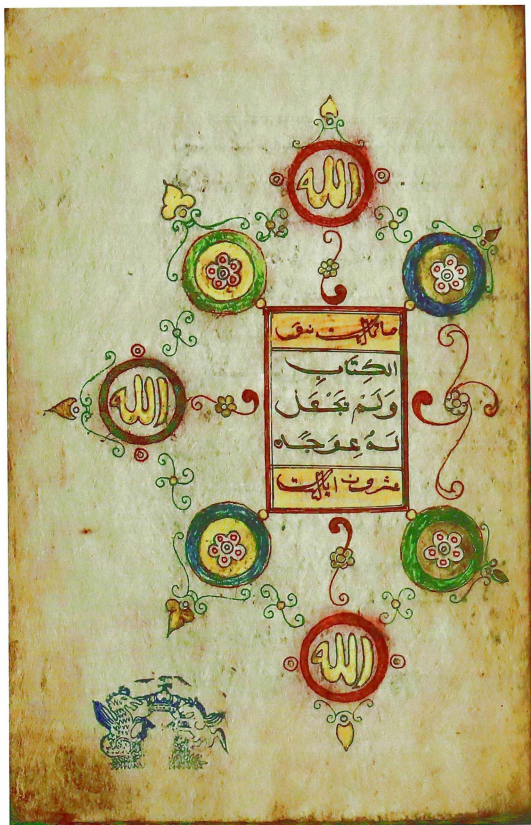 الله
الله
الكِتَابَ
وَلَمْ يَجْعَل
لَهُ عِوَجًا
عشرون
الله